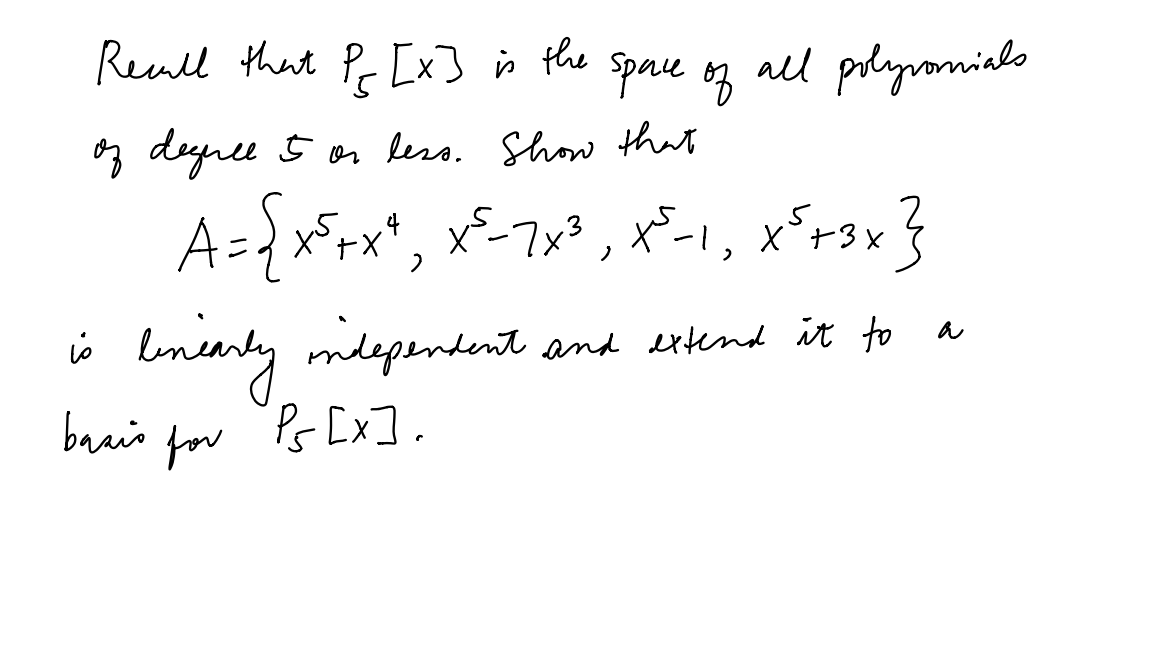 Recall that P₅[x] is the space of all polynomials
of degree 5 or less. Show that
A = { x⁵+x⁴, x⁵-7x³, x⁵-1, x⁵+3x }
is linearly independent and extend it to a
basis for P₅[x].